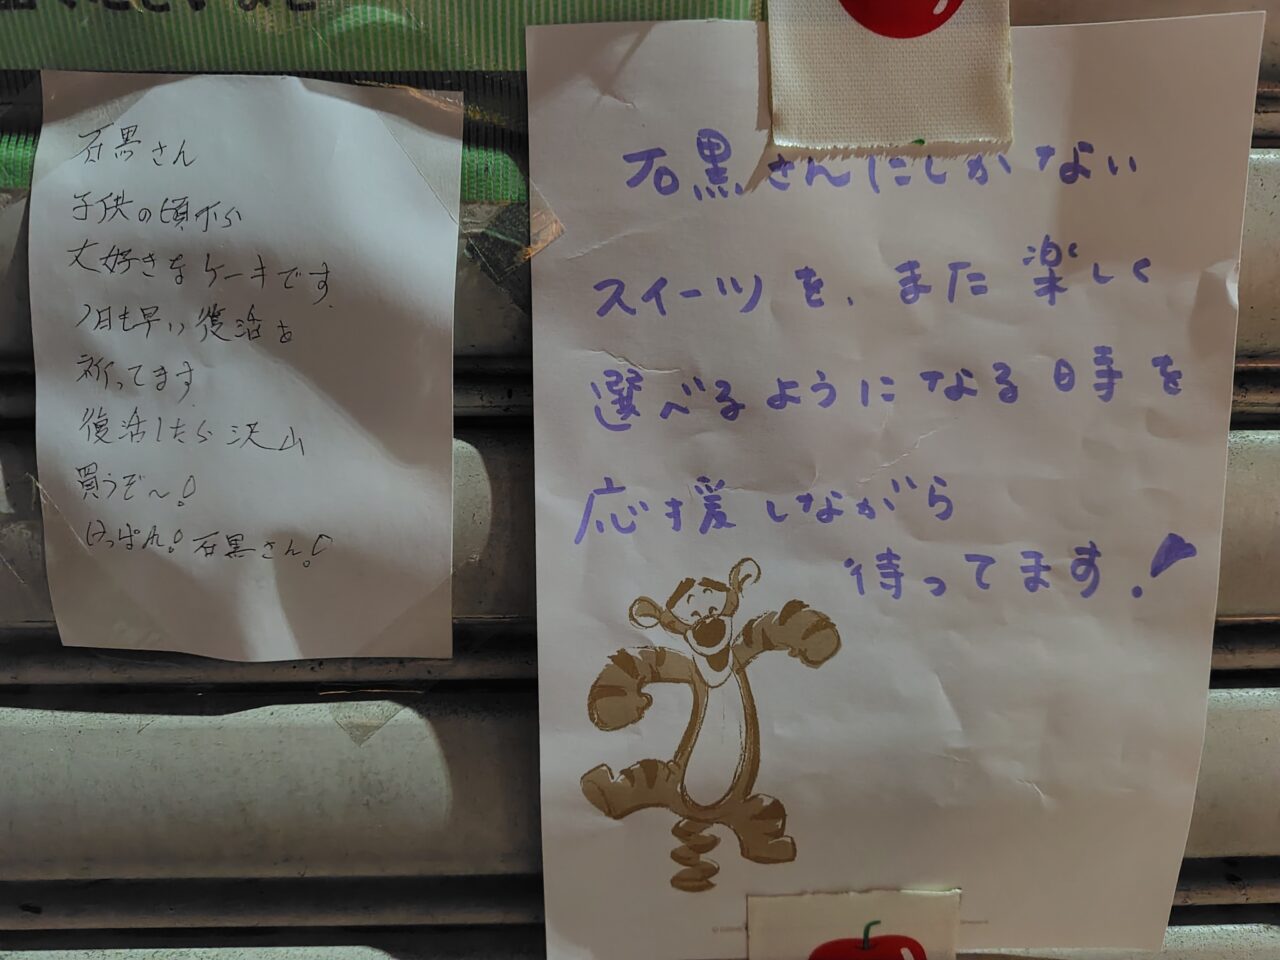 石黒さん
子供の頃から
大好きなケーキです
1日も早い復活を
祈ってます
復活したら沢山
買うぞ〜!
けっぱれ!石黒さん!
石黒さんにしかない
スイーツを、また楽しく
選べるようになる日を
応援しながら
待ってます!